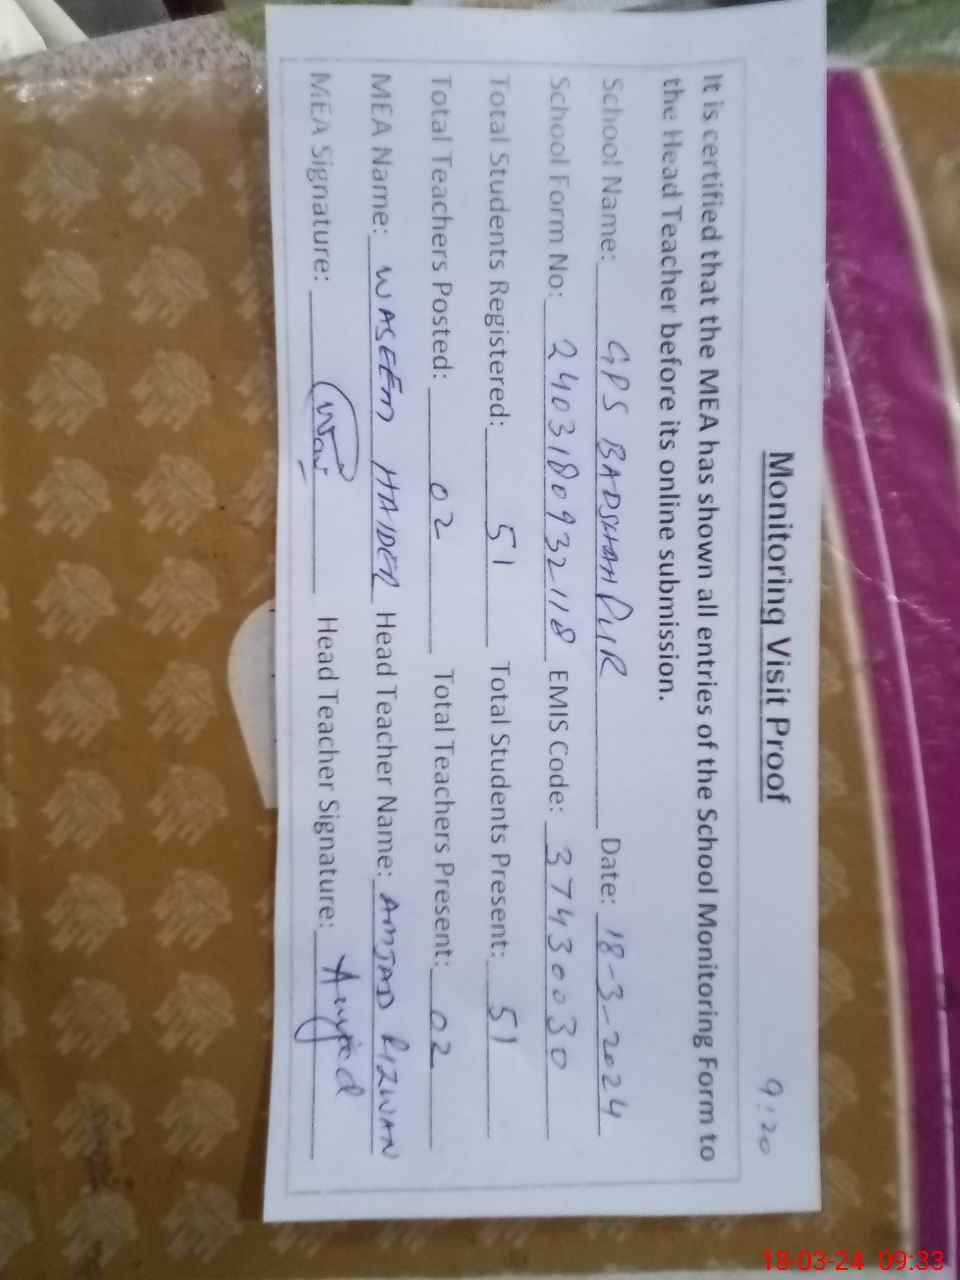 9:20
Monitoring Visit Proof
It is certified that the MEA has shown all entries of the School Monitoring Form to
the Head Teacher before its online submission.
School Name: GPS BADSHAH PUR Date: 18-3-2024
School Form No: 2403180932118 EMIS Code: 37430030
Total Students Registered: 51 Total Students Present: 51
Total Teachers Posted: 02 Total Teachers Present: 02
MEA Name: WASEEM HAIDER Head Teacher Name: AMJAD RIZWAN
MEA Signature: Head Teacher Signature:
18-03-24 09:33